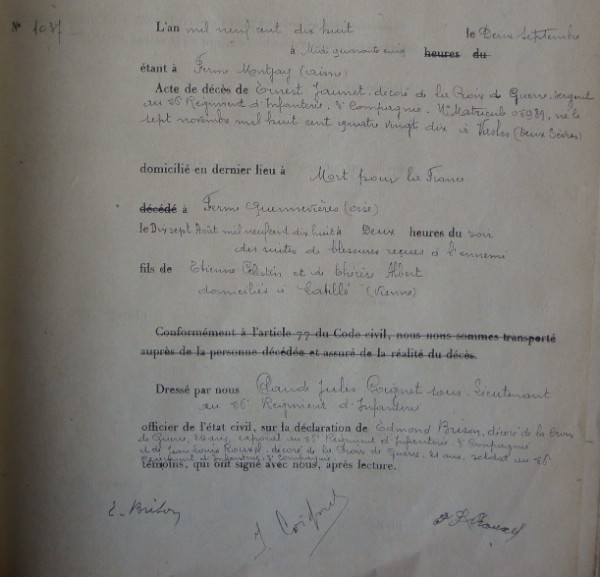 N° 1037
L'an mil neuf cent dix huit le Deux septembre
à Midi quarante cinq heures du
étant à Ferme Montjay (aisne)
Acte de décès de Ernest Jaunet, décoré de la Croix de Guerre, sergent
au 86 Régiment d'Infanterie, 8e Compagnie, N° Matricule 05989, né le
sept novembre mil huit cent quatre vingt dix à Vasles (Deux Sèvres)
domicilié en dernier lieu à Mort pour la France
décédé à Ferme Guennevières (oise)
le Dix sept Août mil neuf cent dix huit à Deux heures du soir
des suites de blessures reçues à l'ennemi
fils de Etienne Célestin et de Thérèse Albert
domiciliés à Latillé (Vienne)
Conformément à l'article 77 du Code civil, nous nous sommes transporté
auprès de la personne décédée et assuré de la réalité du décès.
Dressé par nous Claude Jules Coignet sous-Lieutenant
au 86e Régiment d'Infanterie
officier de l'état civil, sur la déclaration de Edmond Brison, décoré de la Croix
de Guerre, ans, caporal au 86e Régiment d'Infanterie 8e Compagnie
et de Jean Louis décoré de la Croix de Guerre, 21 ans, soldat au 86
Régiment d'Infanterie, 8e Compagnie
témoins, qui ont signé avec nous, après lecture.
E. Brison J. Coignet J. L.